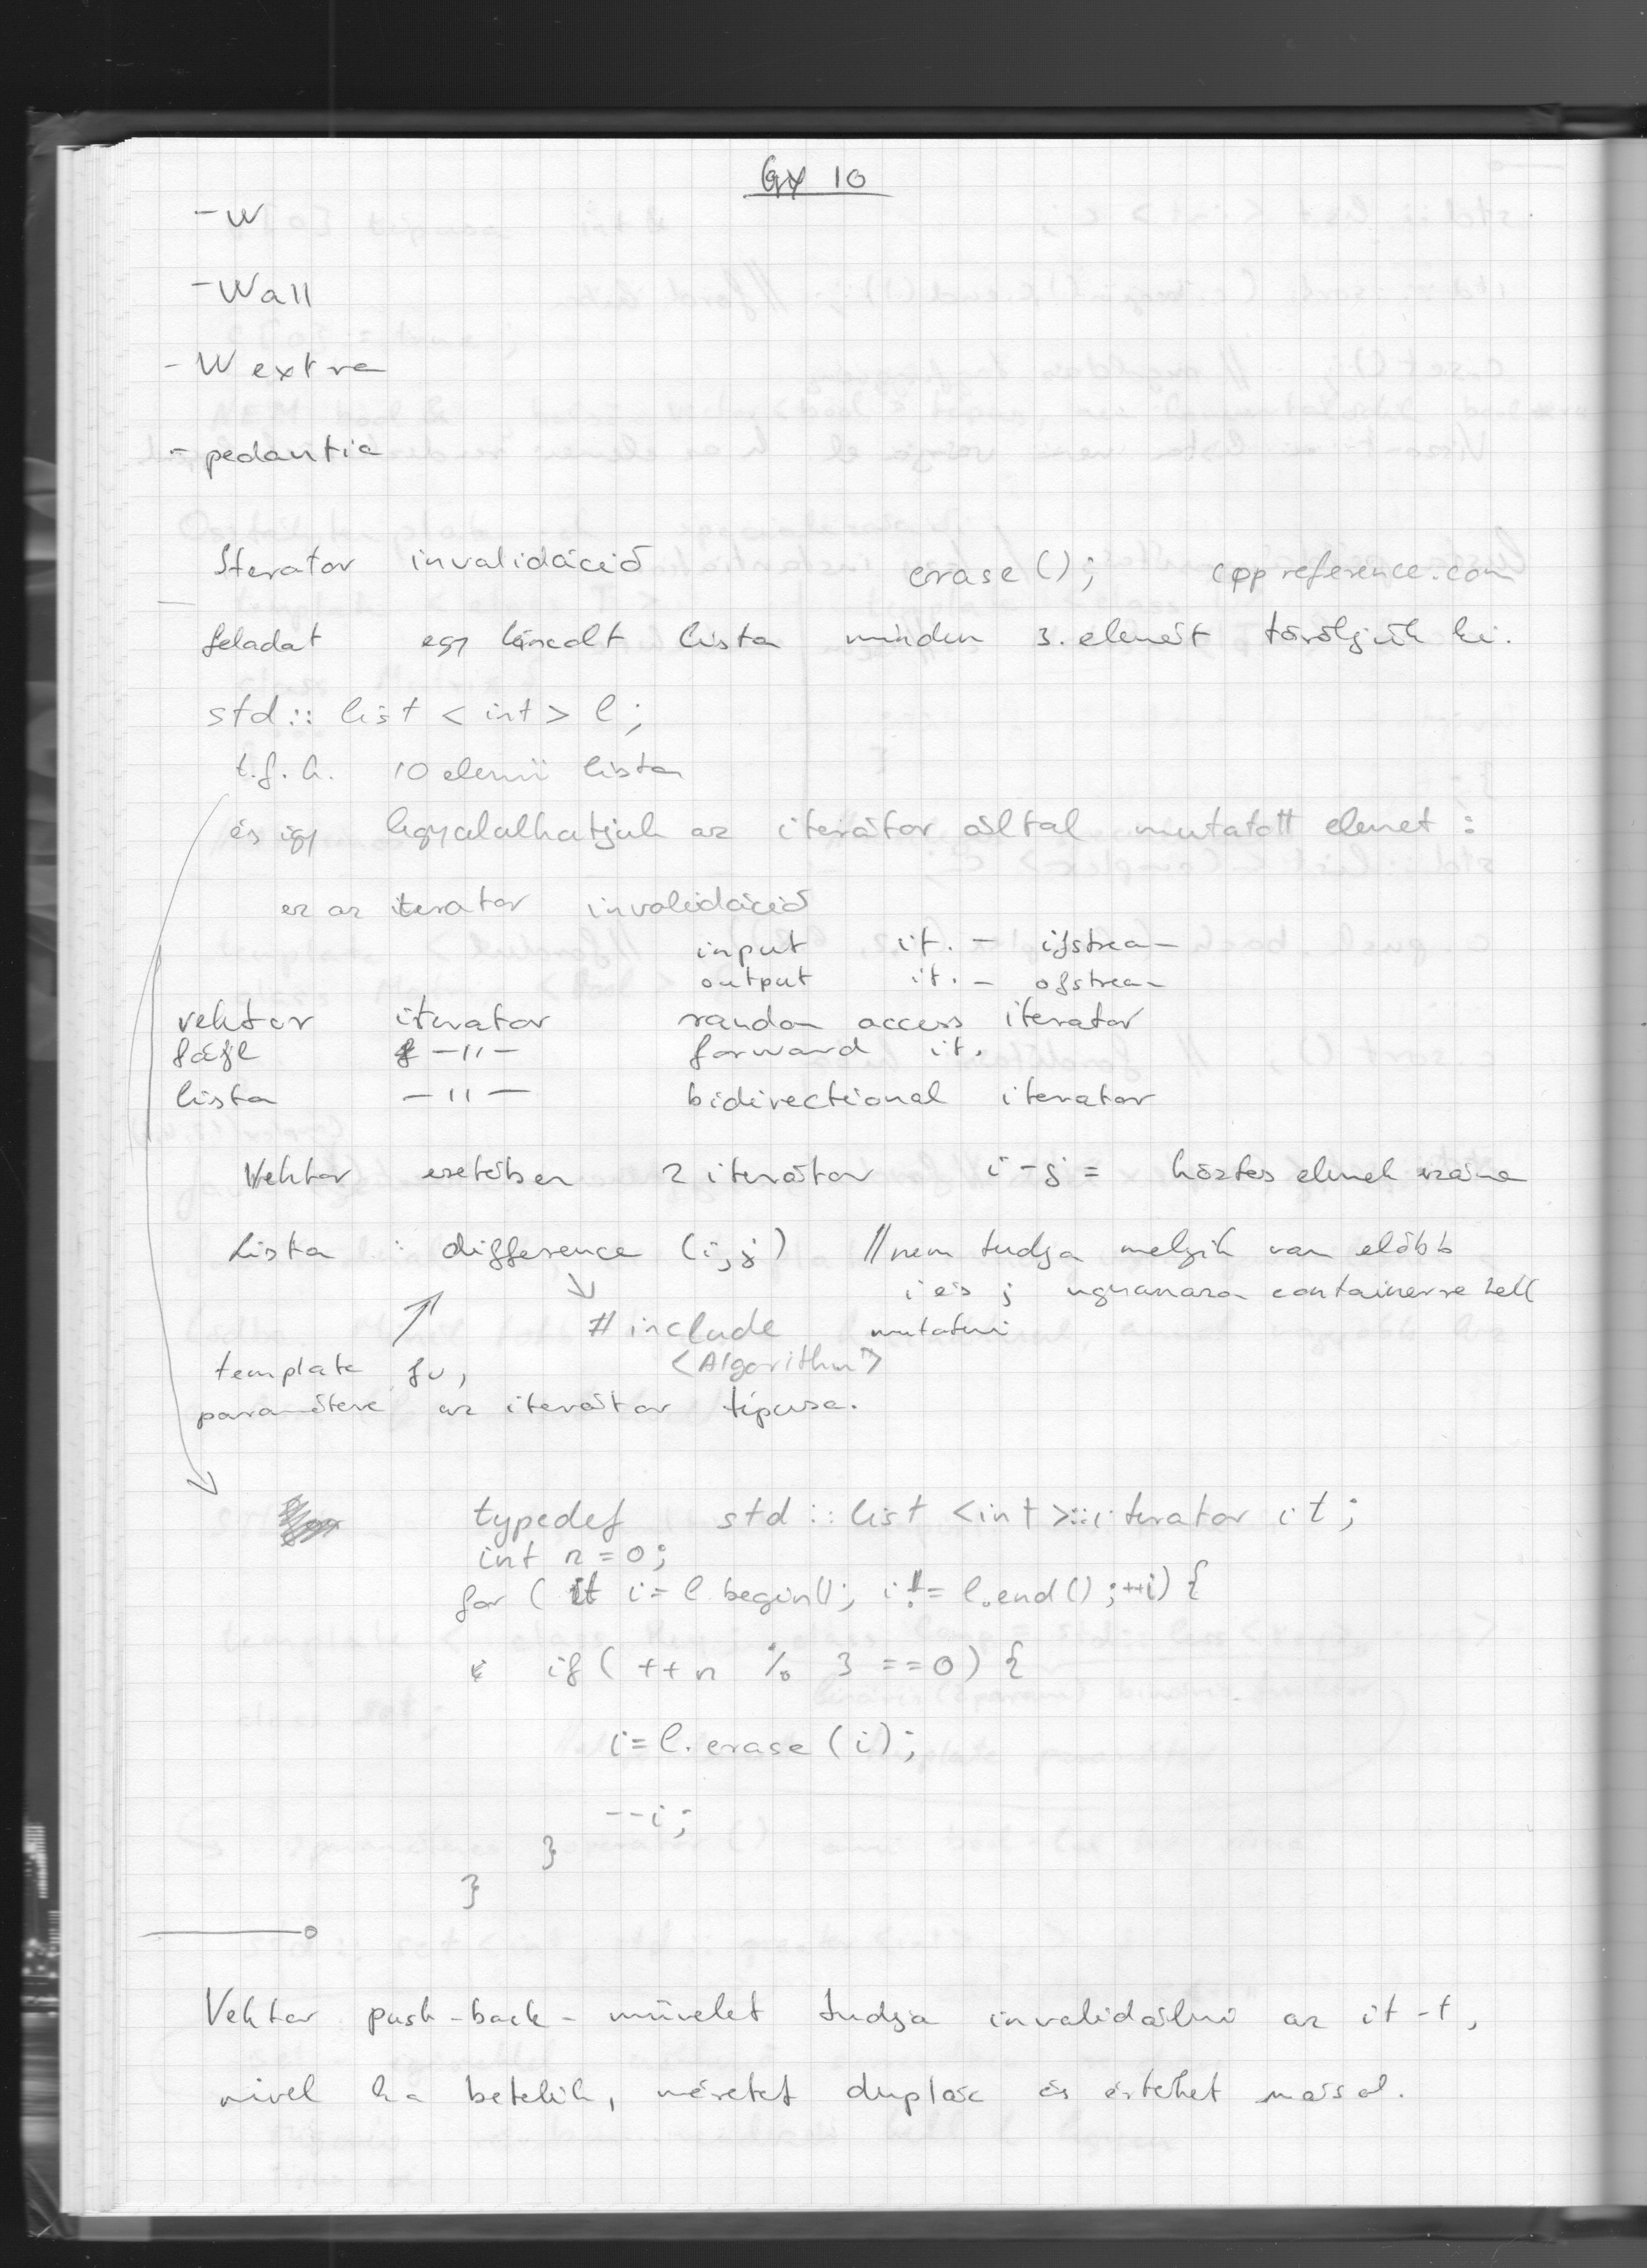 Gy 10
-W
-Wall
-Wextra
-pedantic
Iterator invalidáció erase(); cppreference.com
feladat egy láncolt lista minden 3. elemét töröljük ki.
std::list<int> l;
t.f.h. 10 elemű lista
és így az iterátor által mutatott elemet:
ez az iterator invalidáció
input it. - ifstream
output it. - ofstream
vektor iterator random access iterator
fájl -"- forward it.
lista -"- bidirectional iterator
Vektor esetében 2 iterátor i-j = köztes elemek száma
Lista : difference (i,j) //nem tudja melyik van előbb
i és j ugyanarra containerre kell
#include mutatni
template fv, <Algorithm>
paramétere az iterátor típusa.
typedef std::list<int>::iterator it;
int n=0;
for (it i=l.begin(); i!=l.end();++i){
if(++n % 3 ==0){
i=l.erase(i);
--i;
}
}
Vektor push-back- művelet tudja invalidálni az it-t,
mivel ha betelik, méretet dupláz és értéket másol.